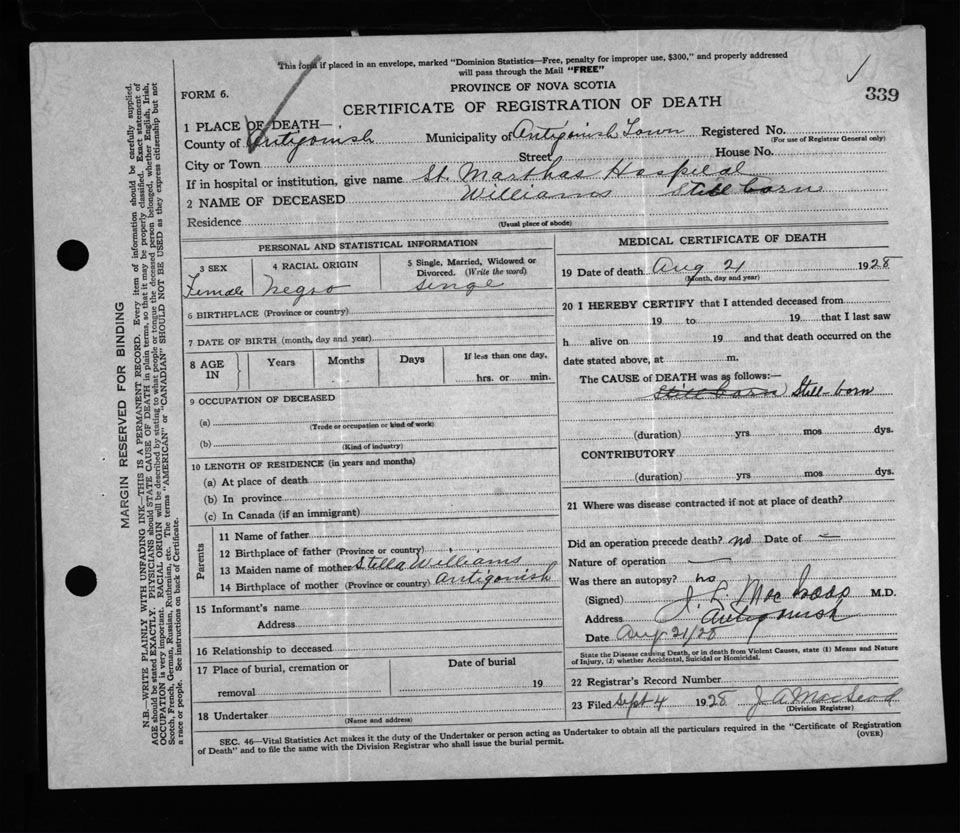 This form if placed in an envelope, marked "Dominion Statistics—Free, penalty for improper use, $300," and properly addressed
will pass through the Mail "FREE"
FORM 6.
PROVINCE OF NOVA SCOTIA
339
CERTIFICATE OF REGISTRATION OF DEATH
1 PLACE OF DEATH—
County of Antigonish Municipality of Antigonish Town Registered No.
(For use of Registrar General only)
City or Town Street House No.
If in hospital or institution, give name St. Marthas Hospital
2 NAME OF DECEASED Williams Still born
Residence
(Usual place of abode)
PERSONAL AND STATISTICAL INFORMATION
3 SEX 4 RACIAL ORIGIN 5 Single, Married, Widowed or Divorced. (Write the word)
Female Negro Singe
6 BIRTHPLACE (Province or country)
7 DATE OF BIRTH (month, day and year)
8 AGE IN Years Months Days If less than one day, hrs. or min.
9 OCCUPATION OF DECEASED
(a)
(Trade or occupation or kind of work)
(b)
(Kind of industry)
10 LENGTH OF RESIDENCE (in years and months)
(a) At place of death
(b) In province
(c) In Canada (if an immigrant)
Parents
11 Name of father
12 Birthplace of father (Province or country)
13 Maiden name of mother Stella Williams
14 Birthplace of mother (Province or country) Antigonish
15 Informant's name
Address
16 Relationship to deceased
17 Place of burial, cremation or removal
Date of burial
19
18 Undertaker
(Name and address)
MEDICAL CERTIFICATE OF DEATH
19 Date of death Aug 21 1928
(Month, day and year)
20 I HEREBY CERTIFY that I attended deceased from
19 to 19 that I last saw
h alive on 19 and that death occurred on the
date stated above, at m.
The CAUSE of DEATH was as follows:—
Still born Still-born
(duration) yrs mos dys.
CONTRIBUTORY
(duration) yrs mos dys.
21 Where was disease contracted if not at place of death?
Did an operation precede death? no Date of —
Nature of operation —
Was there an autopsy? no
(Signed) M.D.
Address Antigonish
Date Aug 21/28
State the Disease causing Death, or in death from Violent Causes, state (1) Means and Nature
of Injury, (2) whether Accidental, Suicidal or Homicidal.
22 Registrar's Record Number
23 Filed Sept 4 1928 J. A. MacLeod
(Division Registrar)
SEC. 46—Vital Statistics Act makes it the duty of the Undertaker or person acting as Undertaker to obtain all the particulars required in the "Certificate of Registration
of Death" and to file the same with the Division Registrar who shall issue the burial permit.
(OVER)
MARGIN RESERVED FOR BINDING
N.B.—WRITE PLAINLY WITH UNFADING INK—THIS IS A PERMANENT RECORD. Every item of information should be carefully supplied.
AGE should be stated EXACTLY. PHYSICIANS should STATE CAUSE OF DEATH in plain terms, so that it may be properly classified. Exact statement of
OCCUPATION is very important. RACIAL ORIGIN will be described by stating to what people or tongue the deceased person belonged, whether English, Irish,
Scotch, French, German, Russian, Ruthenian, etc. The terms "AMERICAN" or "CANADIAN" SHOULD NOT BE USED as they express citizenship but not
a race or people. See instructions on back of Certificate.